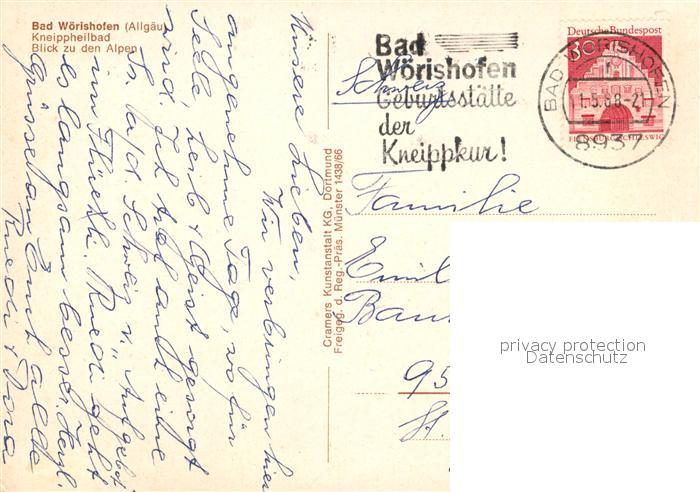 Bad Wörishofen (Allgäu)
Kneippheilbad
Blick zu den Alpen
Unsere Lieben,
Wir verbringen hier
angenehme Tage, wo für
Seele, Leib & Geist gesorgt
wird. Ich hol auch eine
in Thürkli. Ruedi geht
es langsam besser. Herzl.
Grüsse an Euch alle
Ruedi & Dora
Cramers Kunstanstalt KG, Dortmund
Freigeg. d. Reg.-Präs. Münster 1438/66
Bad
Wörishofen
Geburtsstätte
der
Kneippkur!
Deutsche Bundespost
30
FLENSBURG/SCHLESWIG
BAD WÖRISHOFEN
-1.5.68-21
8937
Schweiz
Familie
Emil
95
St.
privacy protection
Datenschutz